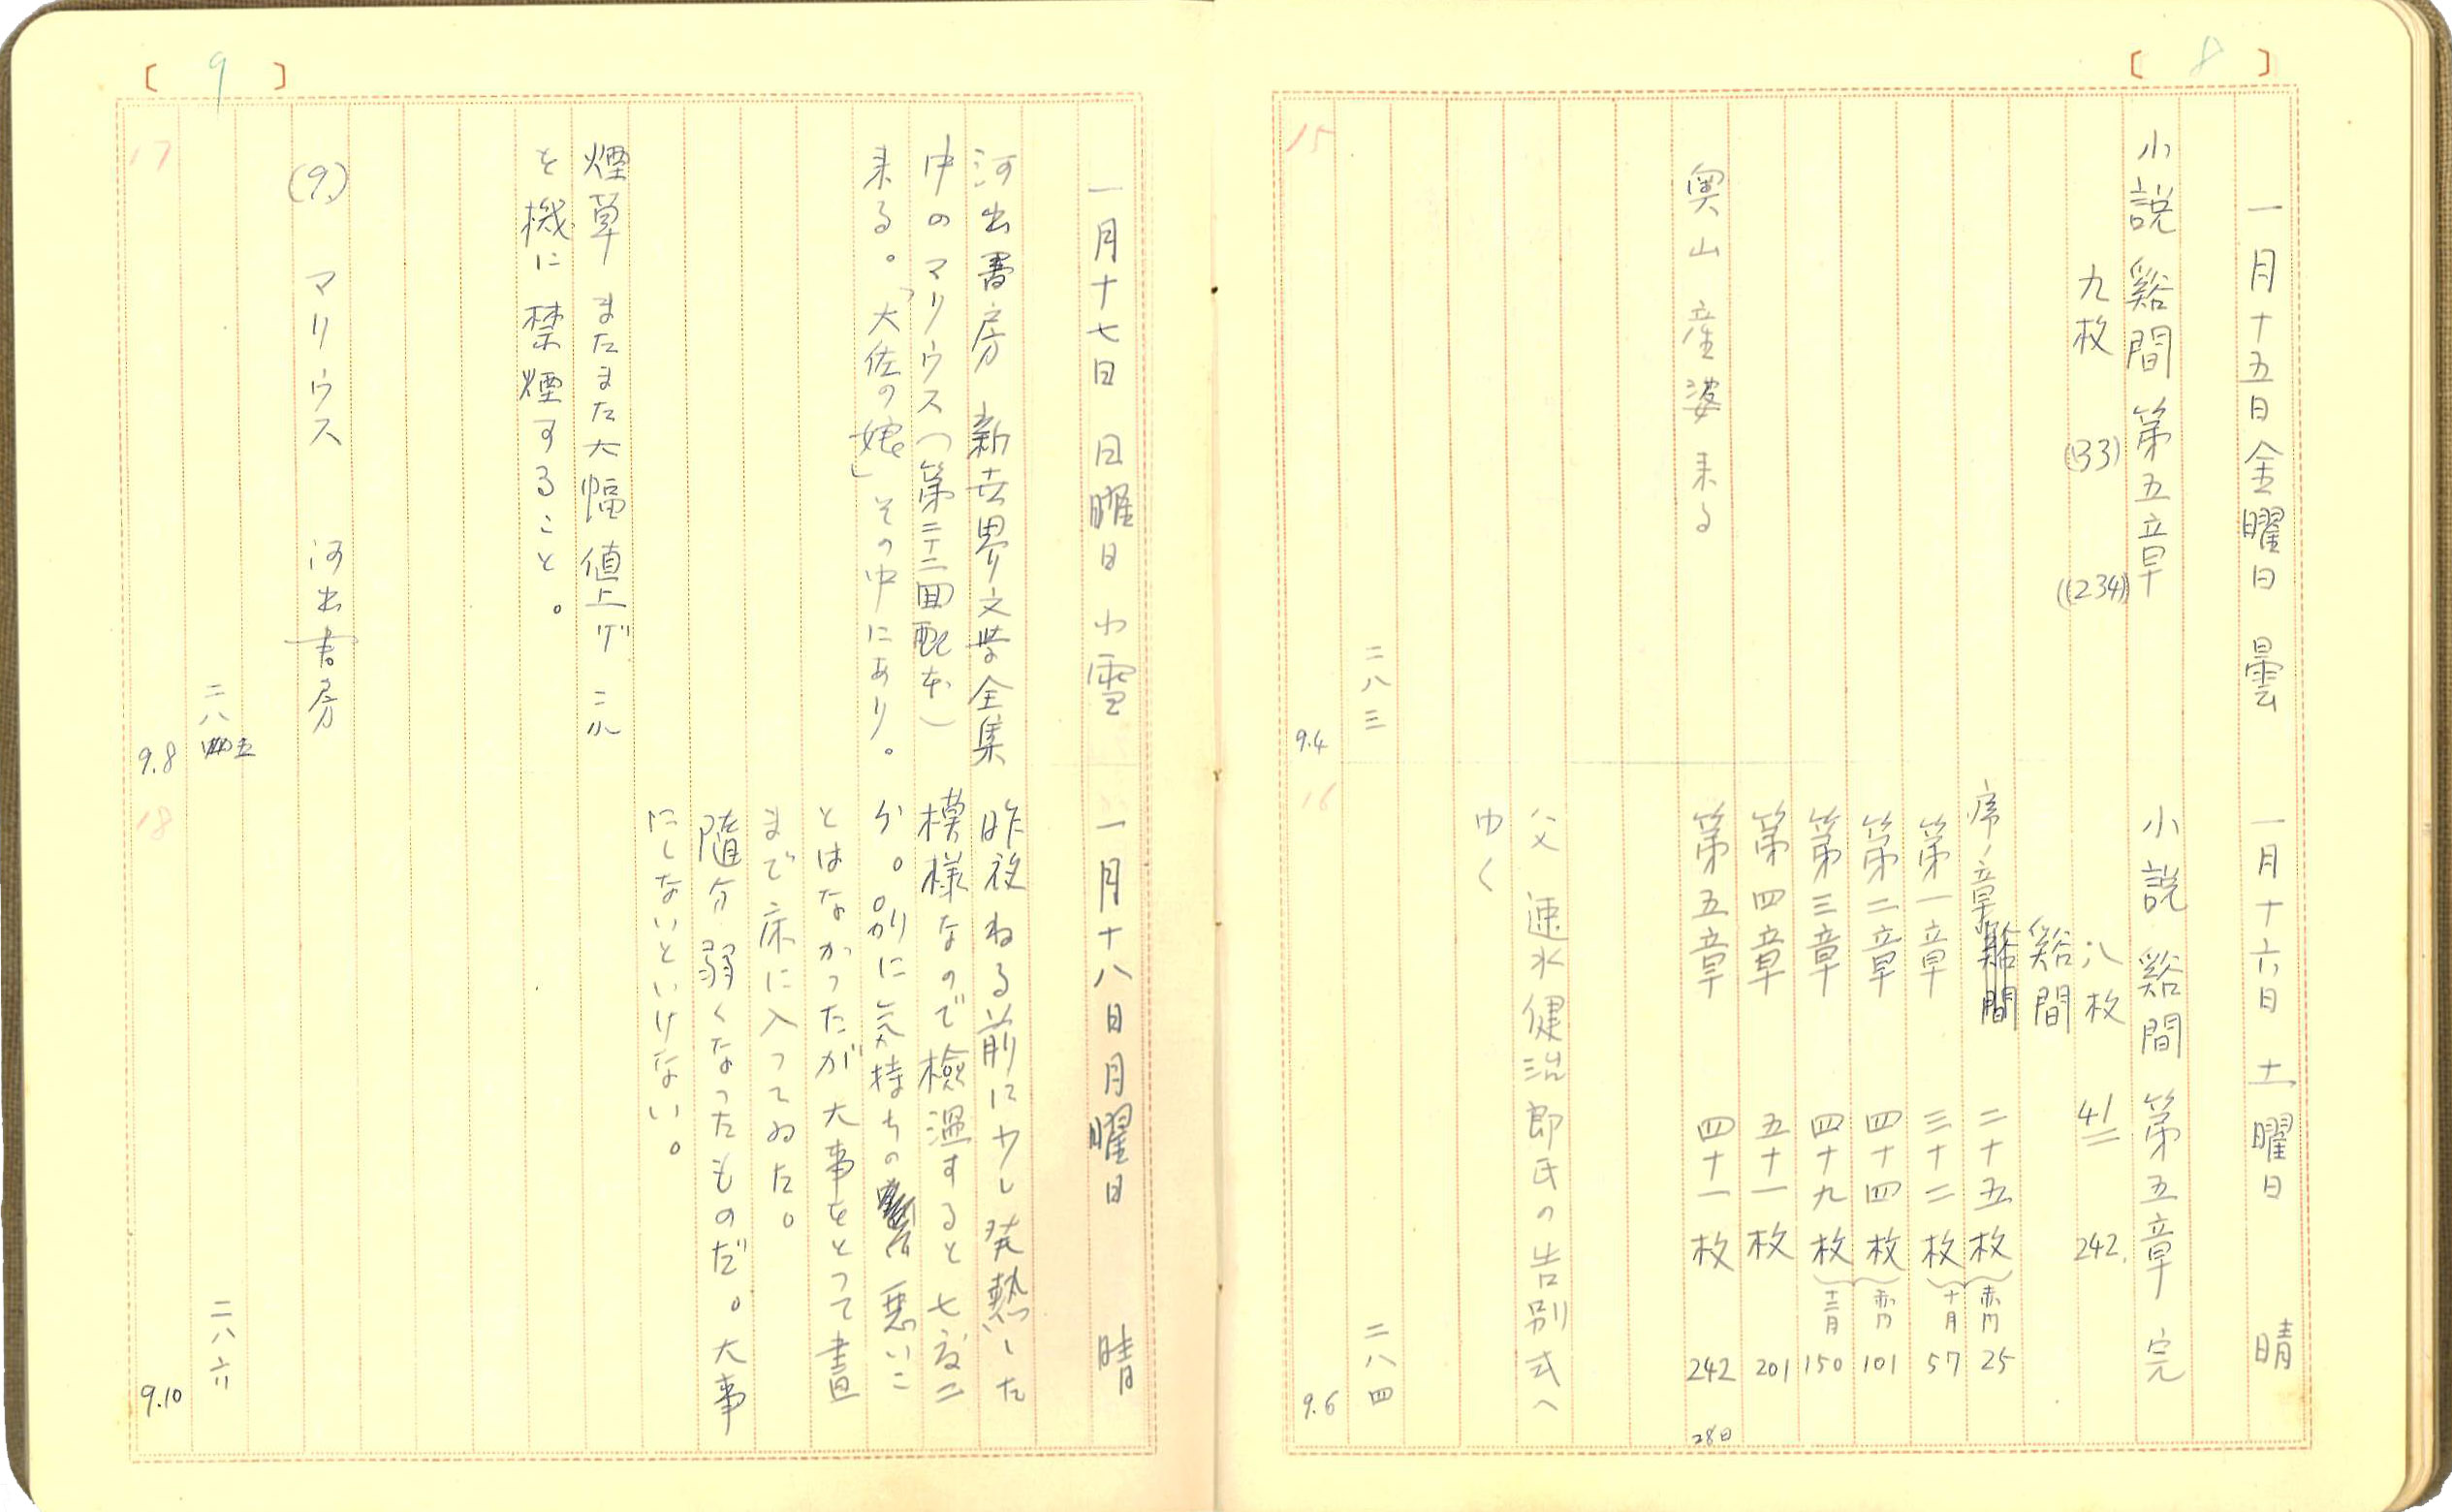 [ 8 ]
一月十五日金曜日 曇
小説 谿間 第五章
九枚 (33) ((234))
奥山産婆来る
二八三
15
9.4
一月十六日 土曜日 晴
小説 谿間 第五章 完
八枚 41 242.
谿間
序ノ章 二十五枚 25
第一章 三十二枚 十月 57
第二章 四十四枚 101
第三章 四十九枚 十二月 150
第四章 五十一枚 201
第五章 四十一枚 242 28日
父 速水健治郎氏の告別式へ
ゆく
二八四
16
9.6
[ 9 ]
一月十七日 日曜日 小雪
河出書房 新世界文学全集
中のマリウス(第二十二回配本)
来る。「大佐の娘」その中にあり。
煙草 またまた大幅値上げ これ
を機に禁煙すること。
(9) マリウス 河出書房
二八五
17
9.8
一月十八日月曜日 晴
昨夜ねる前に少し発熱した
模様なので檢温すると七度二
分。別に気持ちの悪いこ
とはなかったが大事をとって晝
まで床に入ってゐた。
隨分弱くなったものだ。大事
にしないといけない。
二八六
18
9.10